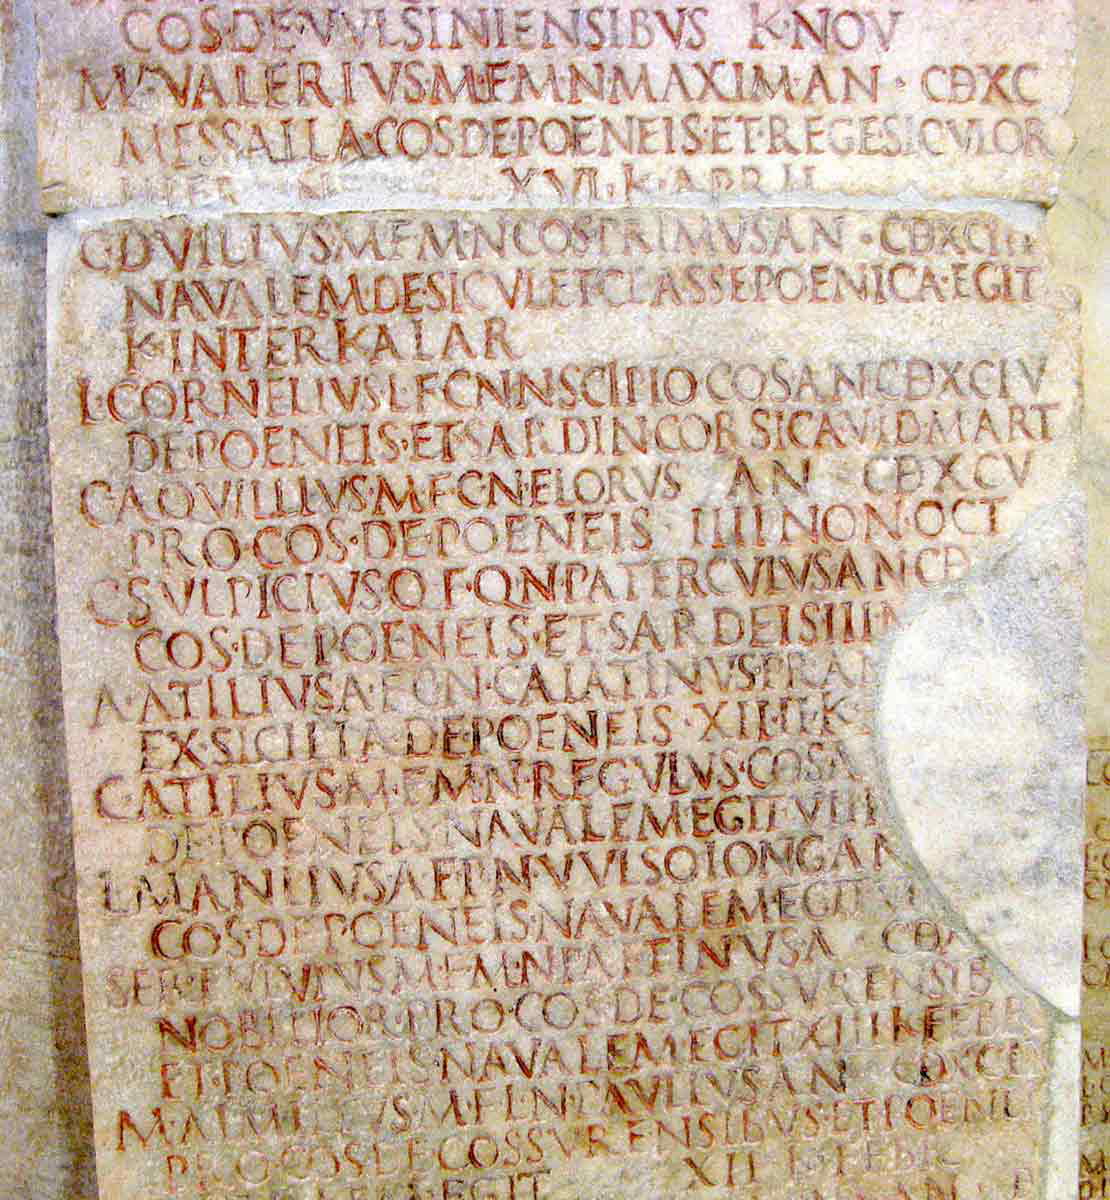 COS·DE·VVLSINIENSIBVS K·NOV
M·VALERIVS M·F·M·N MAXIM·AN · CDXC
MESSALLA·COS DE·POENEIS·ET·REGE SICVLOR
XVI·K·APRIL
C·DVILIVS M·F·M·N COS PRIMVS AN · CDXCII
NAVALEM·DE SICVL·ET CLASSE POENICA·EGIT
K·INTERKALAR
L·CORNELIVS L·F·CN·N SCIPIO COS AN CDXCIV
DE·POENEIS·ET·SARDIN CORSICA·V·ID·MART
C·AQVILLIVS·M·F·C·N·FLORVS AN CDXCV
PRO·COS·DE·POENEIS IIII NON·OCT
C·SVLPICIVS Q·F·Q·N·PATERCVLVS AN CD
COS·DE POENEIS·ET·SARDEIS III N
A·ATILIVS A·F·C·N·CALATINVS PR AN
EX·SICILIA·DE POENEIS·XIIII·K·
C·ATILIVS·M·F·M·N·REGVLVS·COS A
DE POENEIS NAVALEM EGIT VIII
L·MANLIVS A·F·P·N·VVLSO LONG AN
COS·DE POENEIS·NAVALEM EGIT VI
SER·FVLVIVS M·F·M·N PAETINVS A CDX
NOBILIOR·PRO·COS DE·COSSVRENSIB
ET·POENEIS NAVALEM EGIT XIII K FEBR
M·AEMILIVS M·F·L·N·PAVLLVS AN CDXCIX
PRO COS DE COSSVRENSIBVS ET POENEI
EGIT XII K FEBR